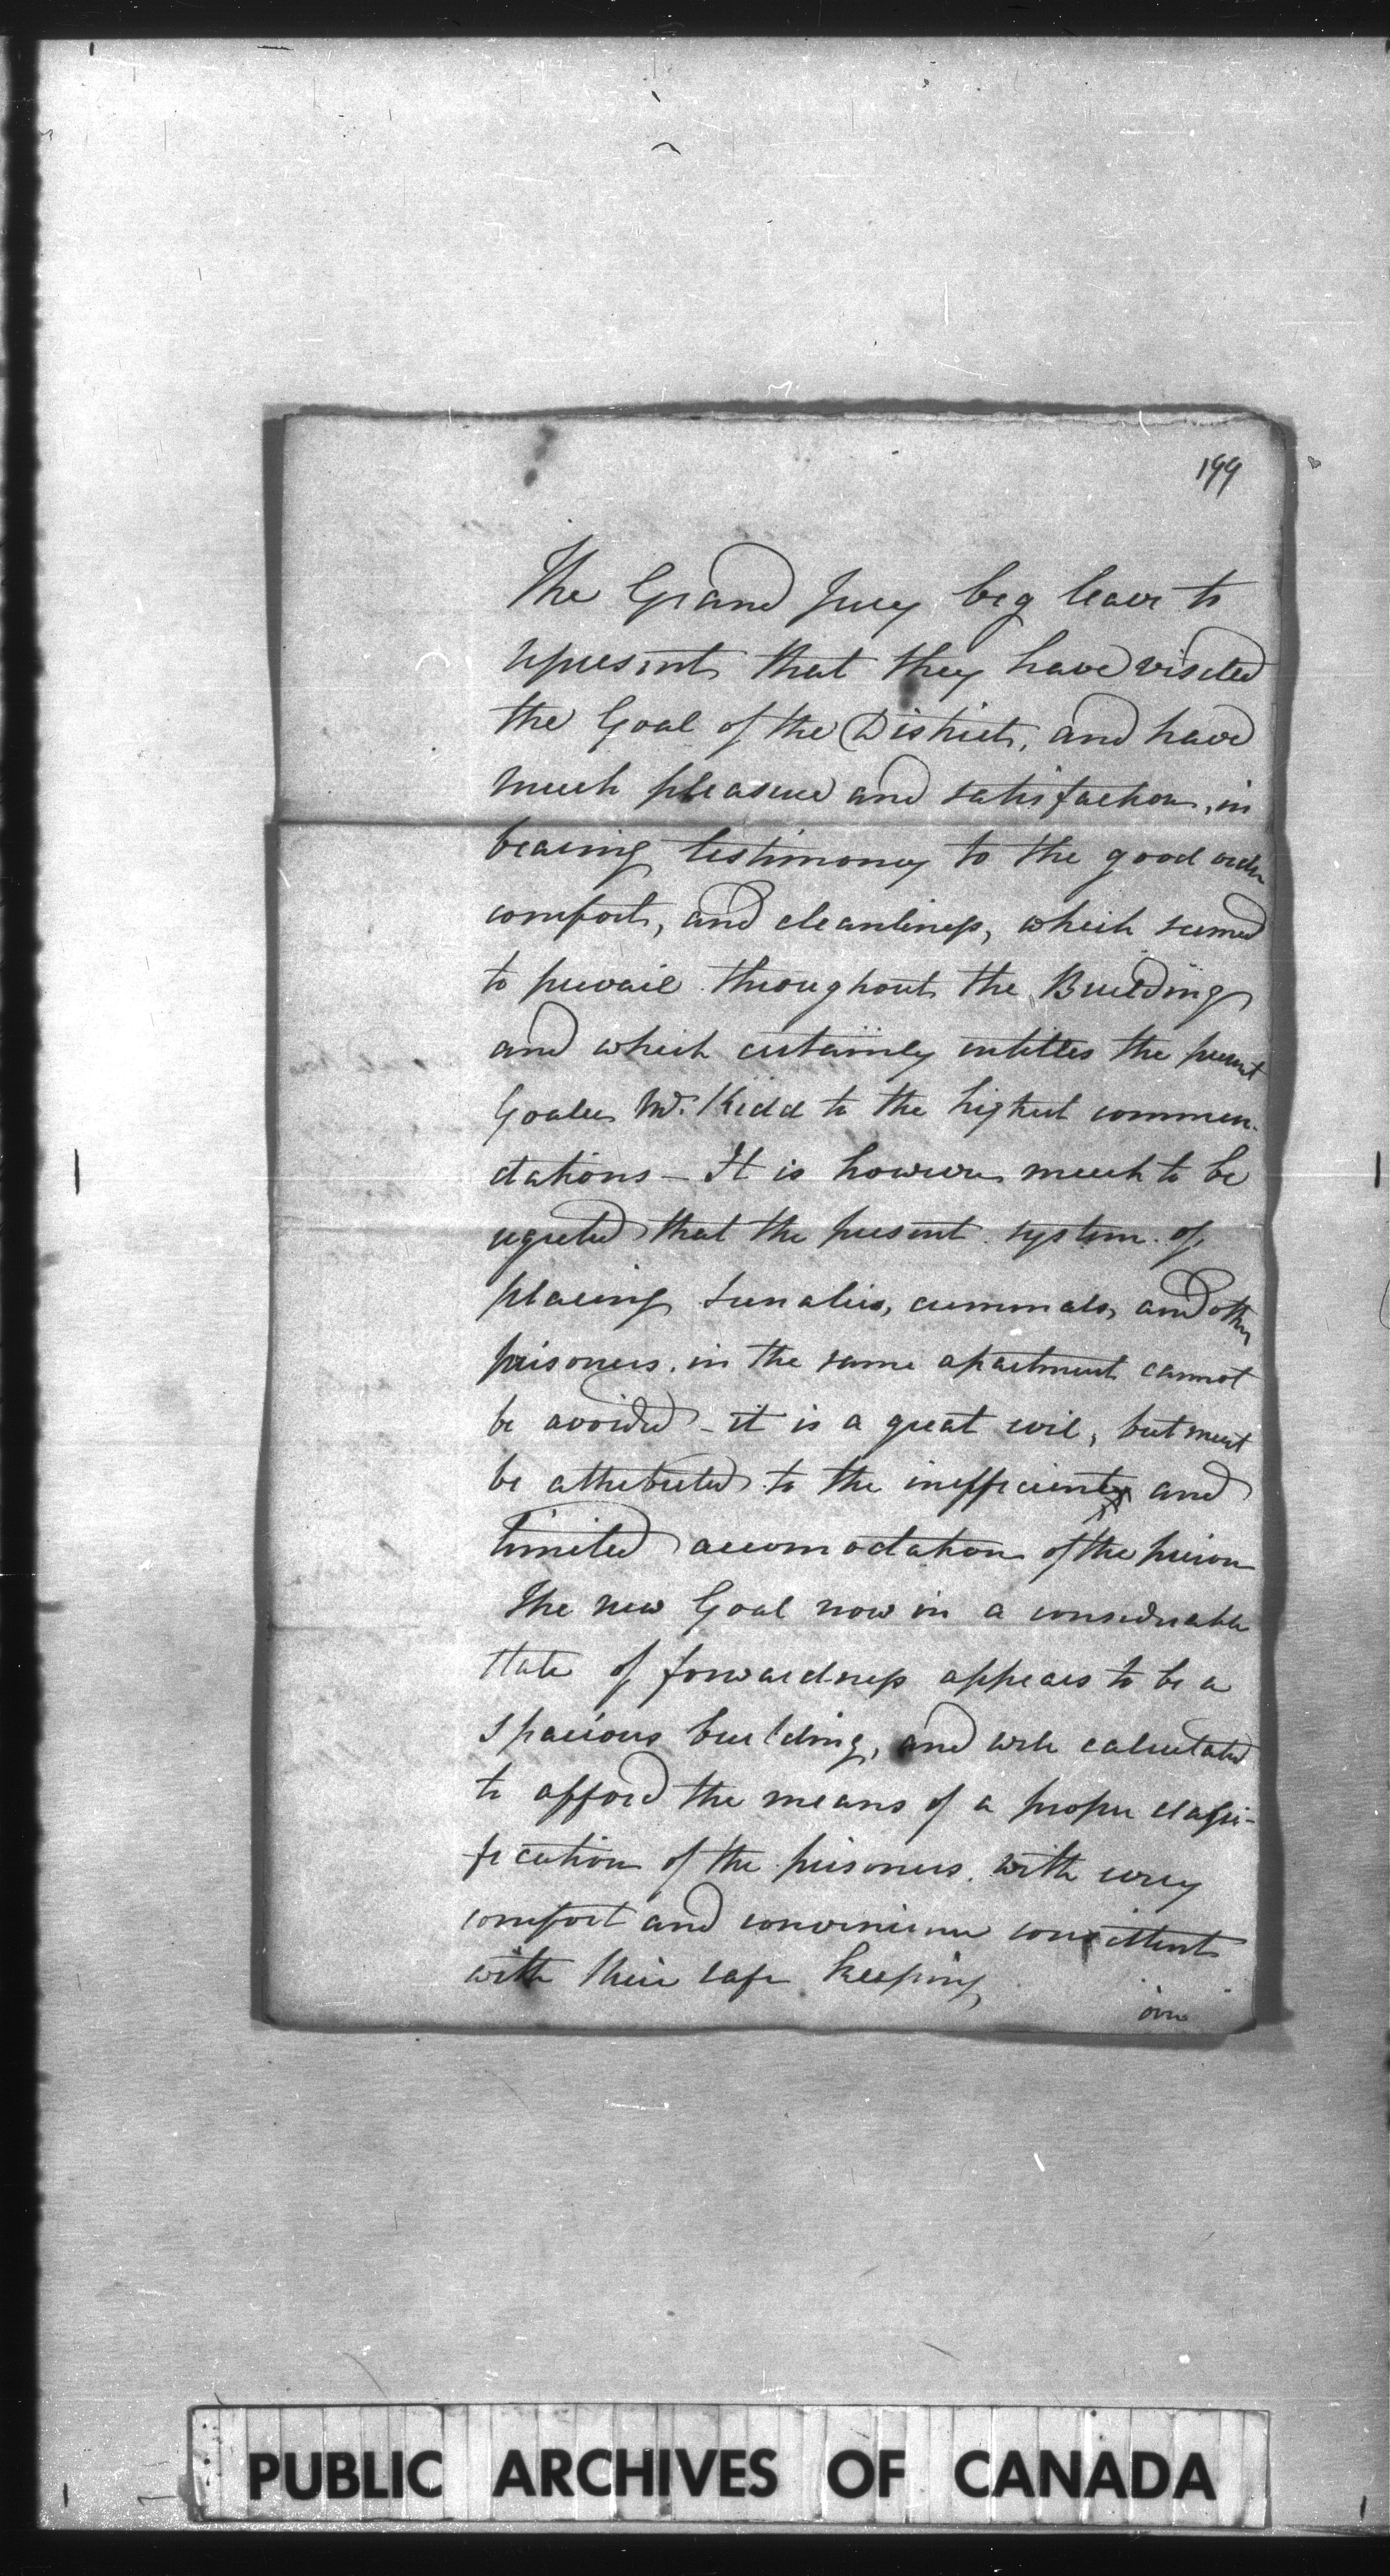 199
The Grand Jury beg leave to
represent that they have visited
the Goal of the District, and have
much pleasure and satisfaction, in
bearing testimony to the good order
comfort, and cleanliness, which seemed
to prevail throughout the Building
and which certainly entitles the present
Goaler Mr. Kidd to the highest commen-
dations - It is however much to be
regreted that the present system of
placing Lunatics, criminals, and other
prisoners, in the same apartment cannot
be avoided - it is a great evil, but must
be attributed to the inefficient and
limited accomodation of the prison
The new Goal now in a considerable
state of forwardness appears to be a
spacious building, and well calculated
to afford the means of a proper classi-
fication of the prisoners, with every
comfort and convenience consistent
with their safe keeping
over
PUBLIC ARCHIVES OF CANADA